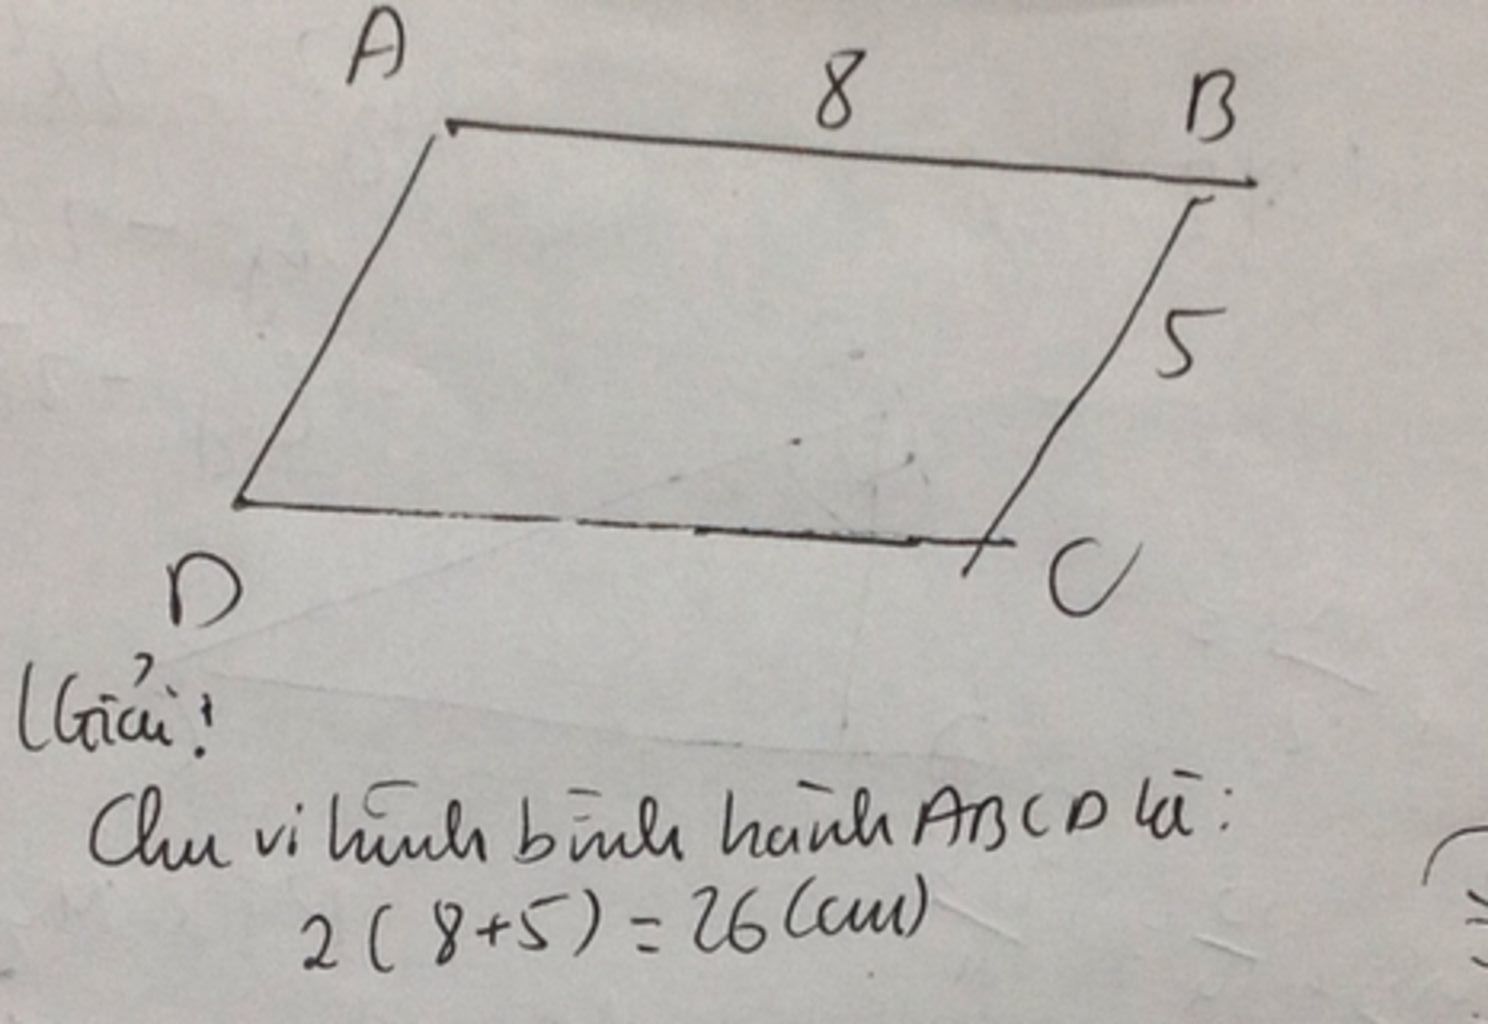 A
8
B
5
D
C
Giải:
Chu vi hình bình hành ABCD là:
2(8+5) = 26 (cm)